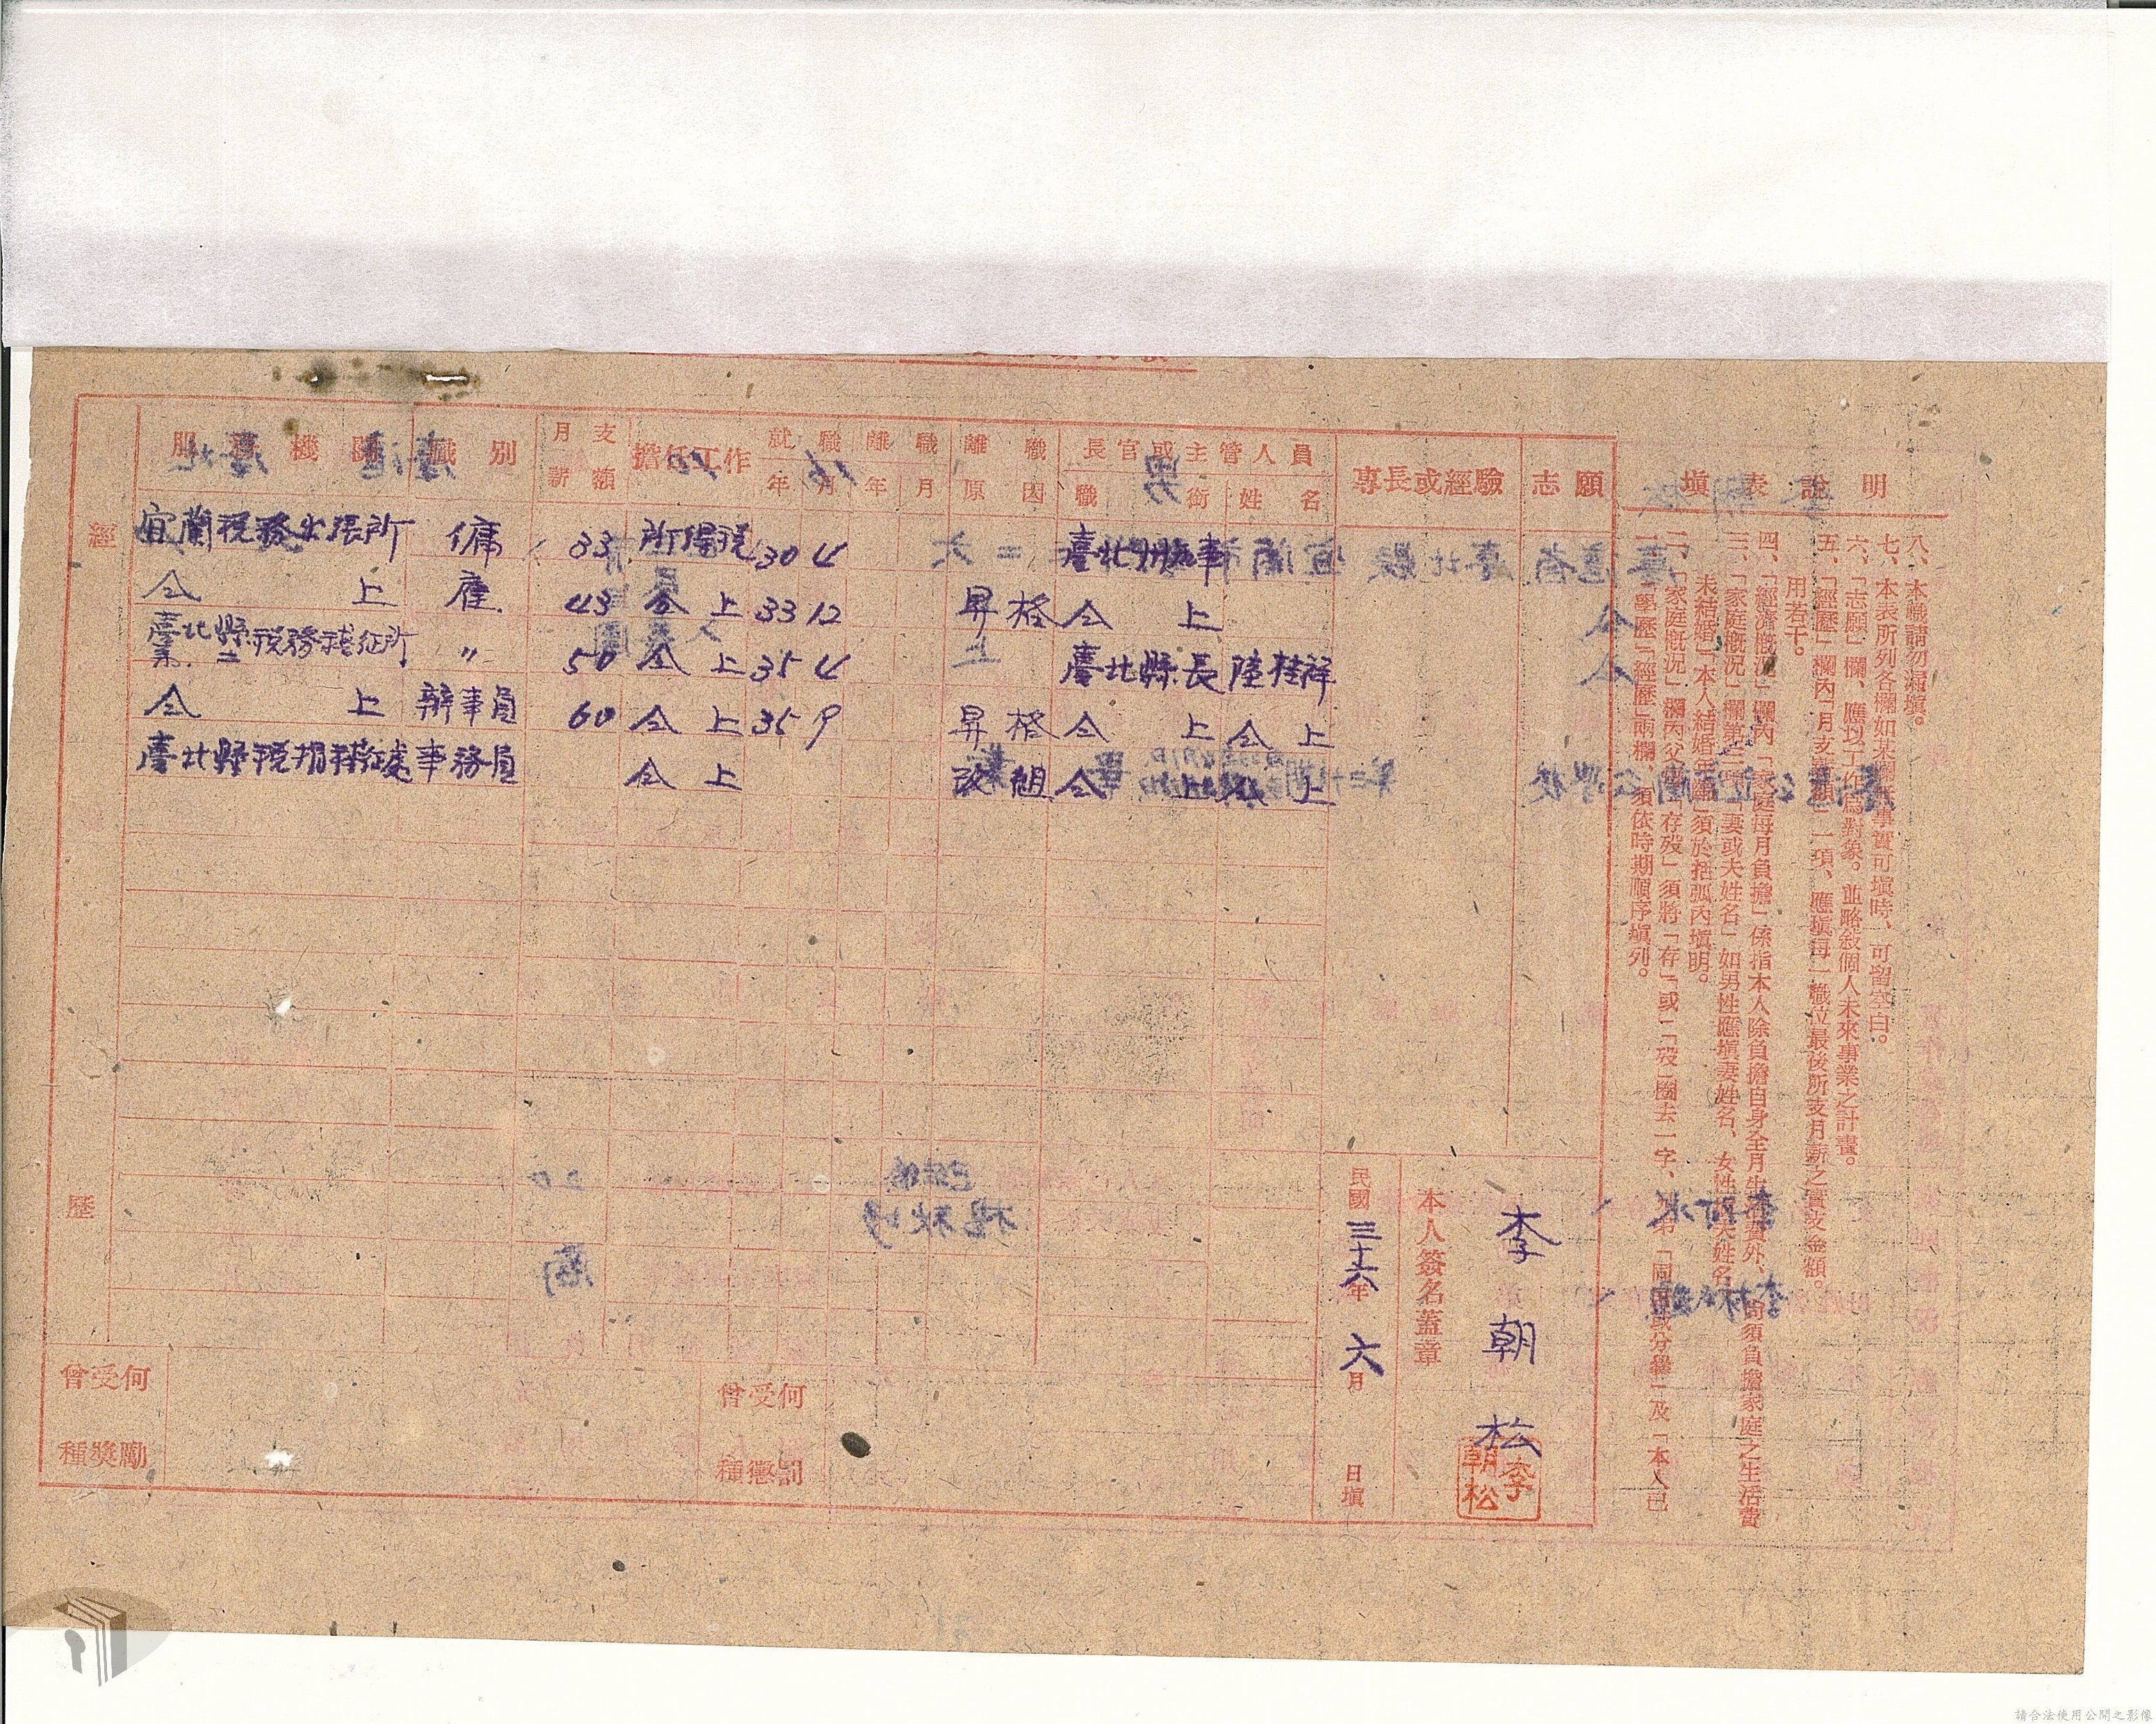 經歷
服務機關 職別 月支薪額 擔任工作 就職年月 離職年月 離職原因 長官或主管人員 職銜 姓名 專長或經驗 志願
宜蘭稅務出張所 傭 33 所得稅 30 4 臺北州知事
仝上 雇 43 仝上 33 12 昇格 仝上
臺北縣 稅務稽征所 〃 50 仝上 35 4 臺北縣長 陸桂祥
仝上 辦事員 60 仝上 35 9 昇格 仝上 仝上
臺北縣稅捐稽征處 事務員 仝上 改組 仝上 仝上
曾受何種獎勵
曾受何種懲罰
本人簽名蓋章
李朝松
李朝松
民國三十六年六月 日填
填表說明
一、「學歷」「經歷」兩欄、須依時期順序填列。
二、「家庭概況」欄內父母「存歿」須將「存」或「歿」圈去一字、
未結婚」「本人結婚年齡」須於括弧內填明。
三、「家庭概況」欄第二項「妻或夫姓名」如男性應填妻姓名、女性填夫姓名
四、「經濟概況」欄內「家庭每月負擔」係指本人除負擔自身全月生活費外、尚須負擔家庭之生活費
用若干。
五、「經歷」欄內「月支薪額」一項、應填每一職位最後所支月薪之實支金額。
六、「志願」欄、應以工作為對象。並略敘個人未來事業之計畫。
七、本表所列各欄如某欄無事實可填時、可留空白。
八、本職請勿漏填。
請合法使用公開之影像